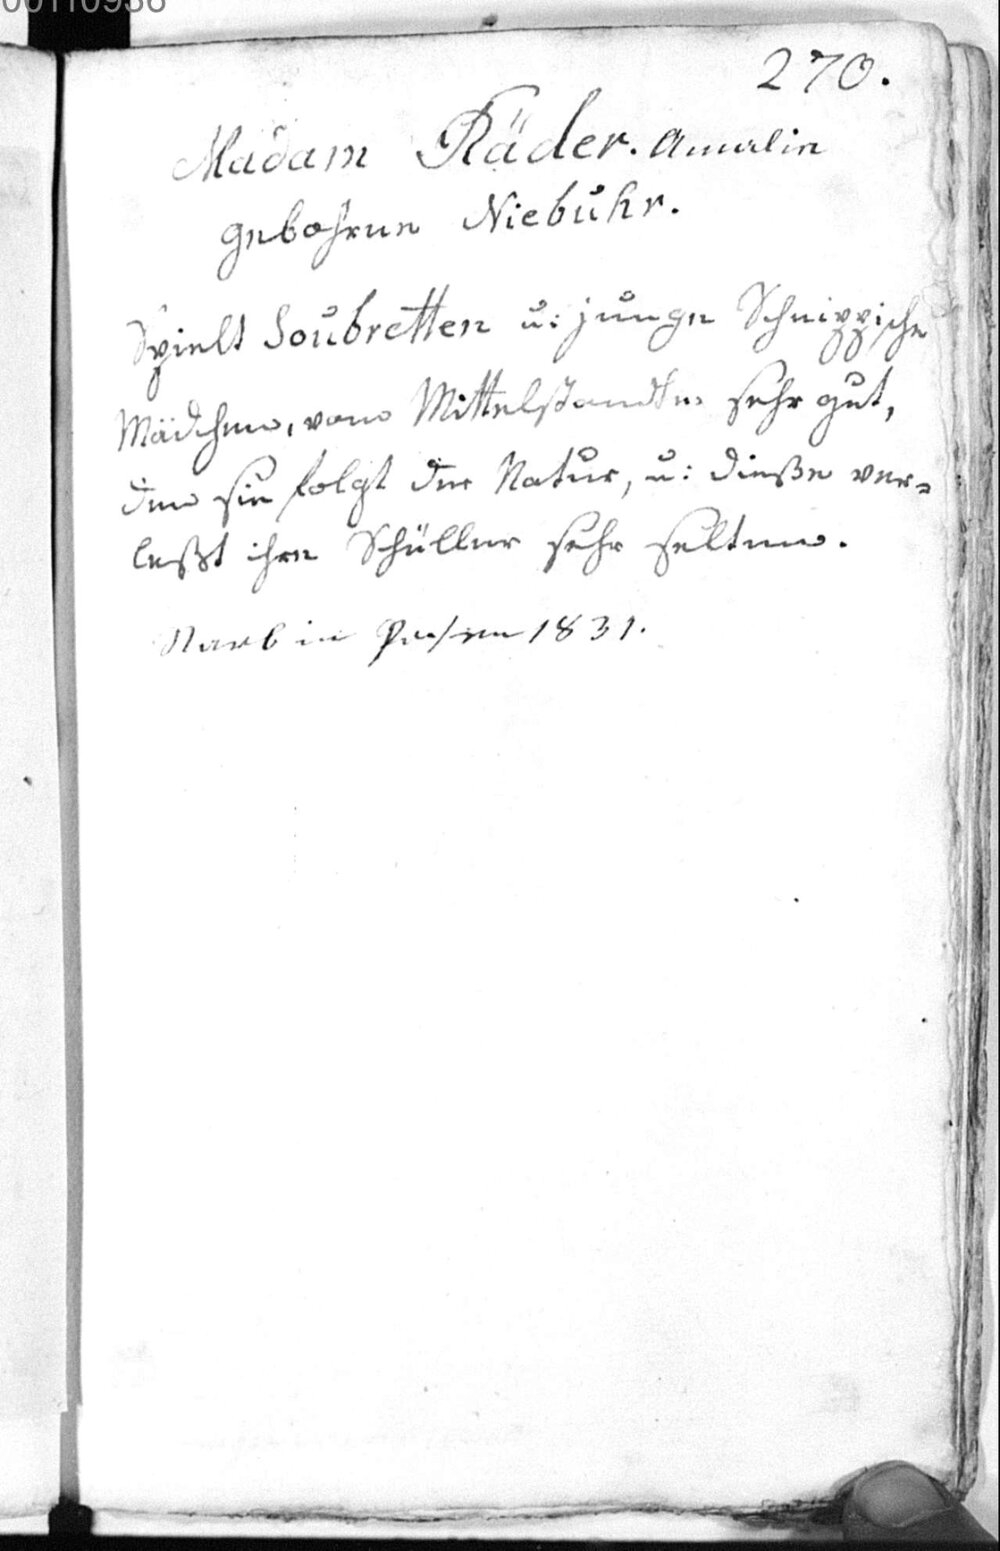 00110936
270.
Madam Räder. Amalie
gebohrne Niebuhr.
Spielt Soubretten u: junge Schnippische
Mädchen, vom Mittelstande sehr gut,
den sie folgt der Natur, u: dieße ver-
leßt ihre Schüller sehr selten.
Starb in Posen 1831.